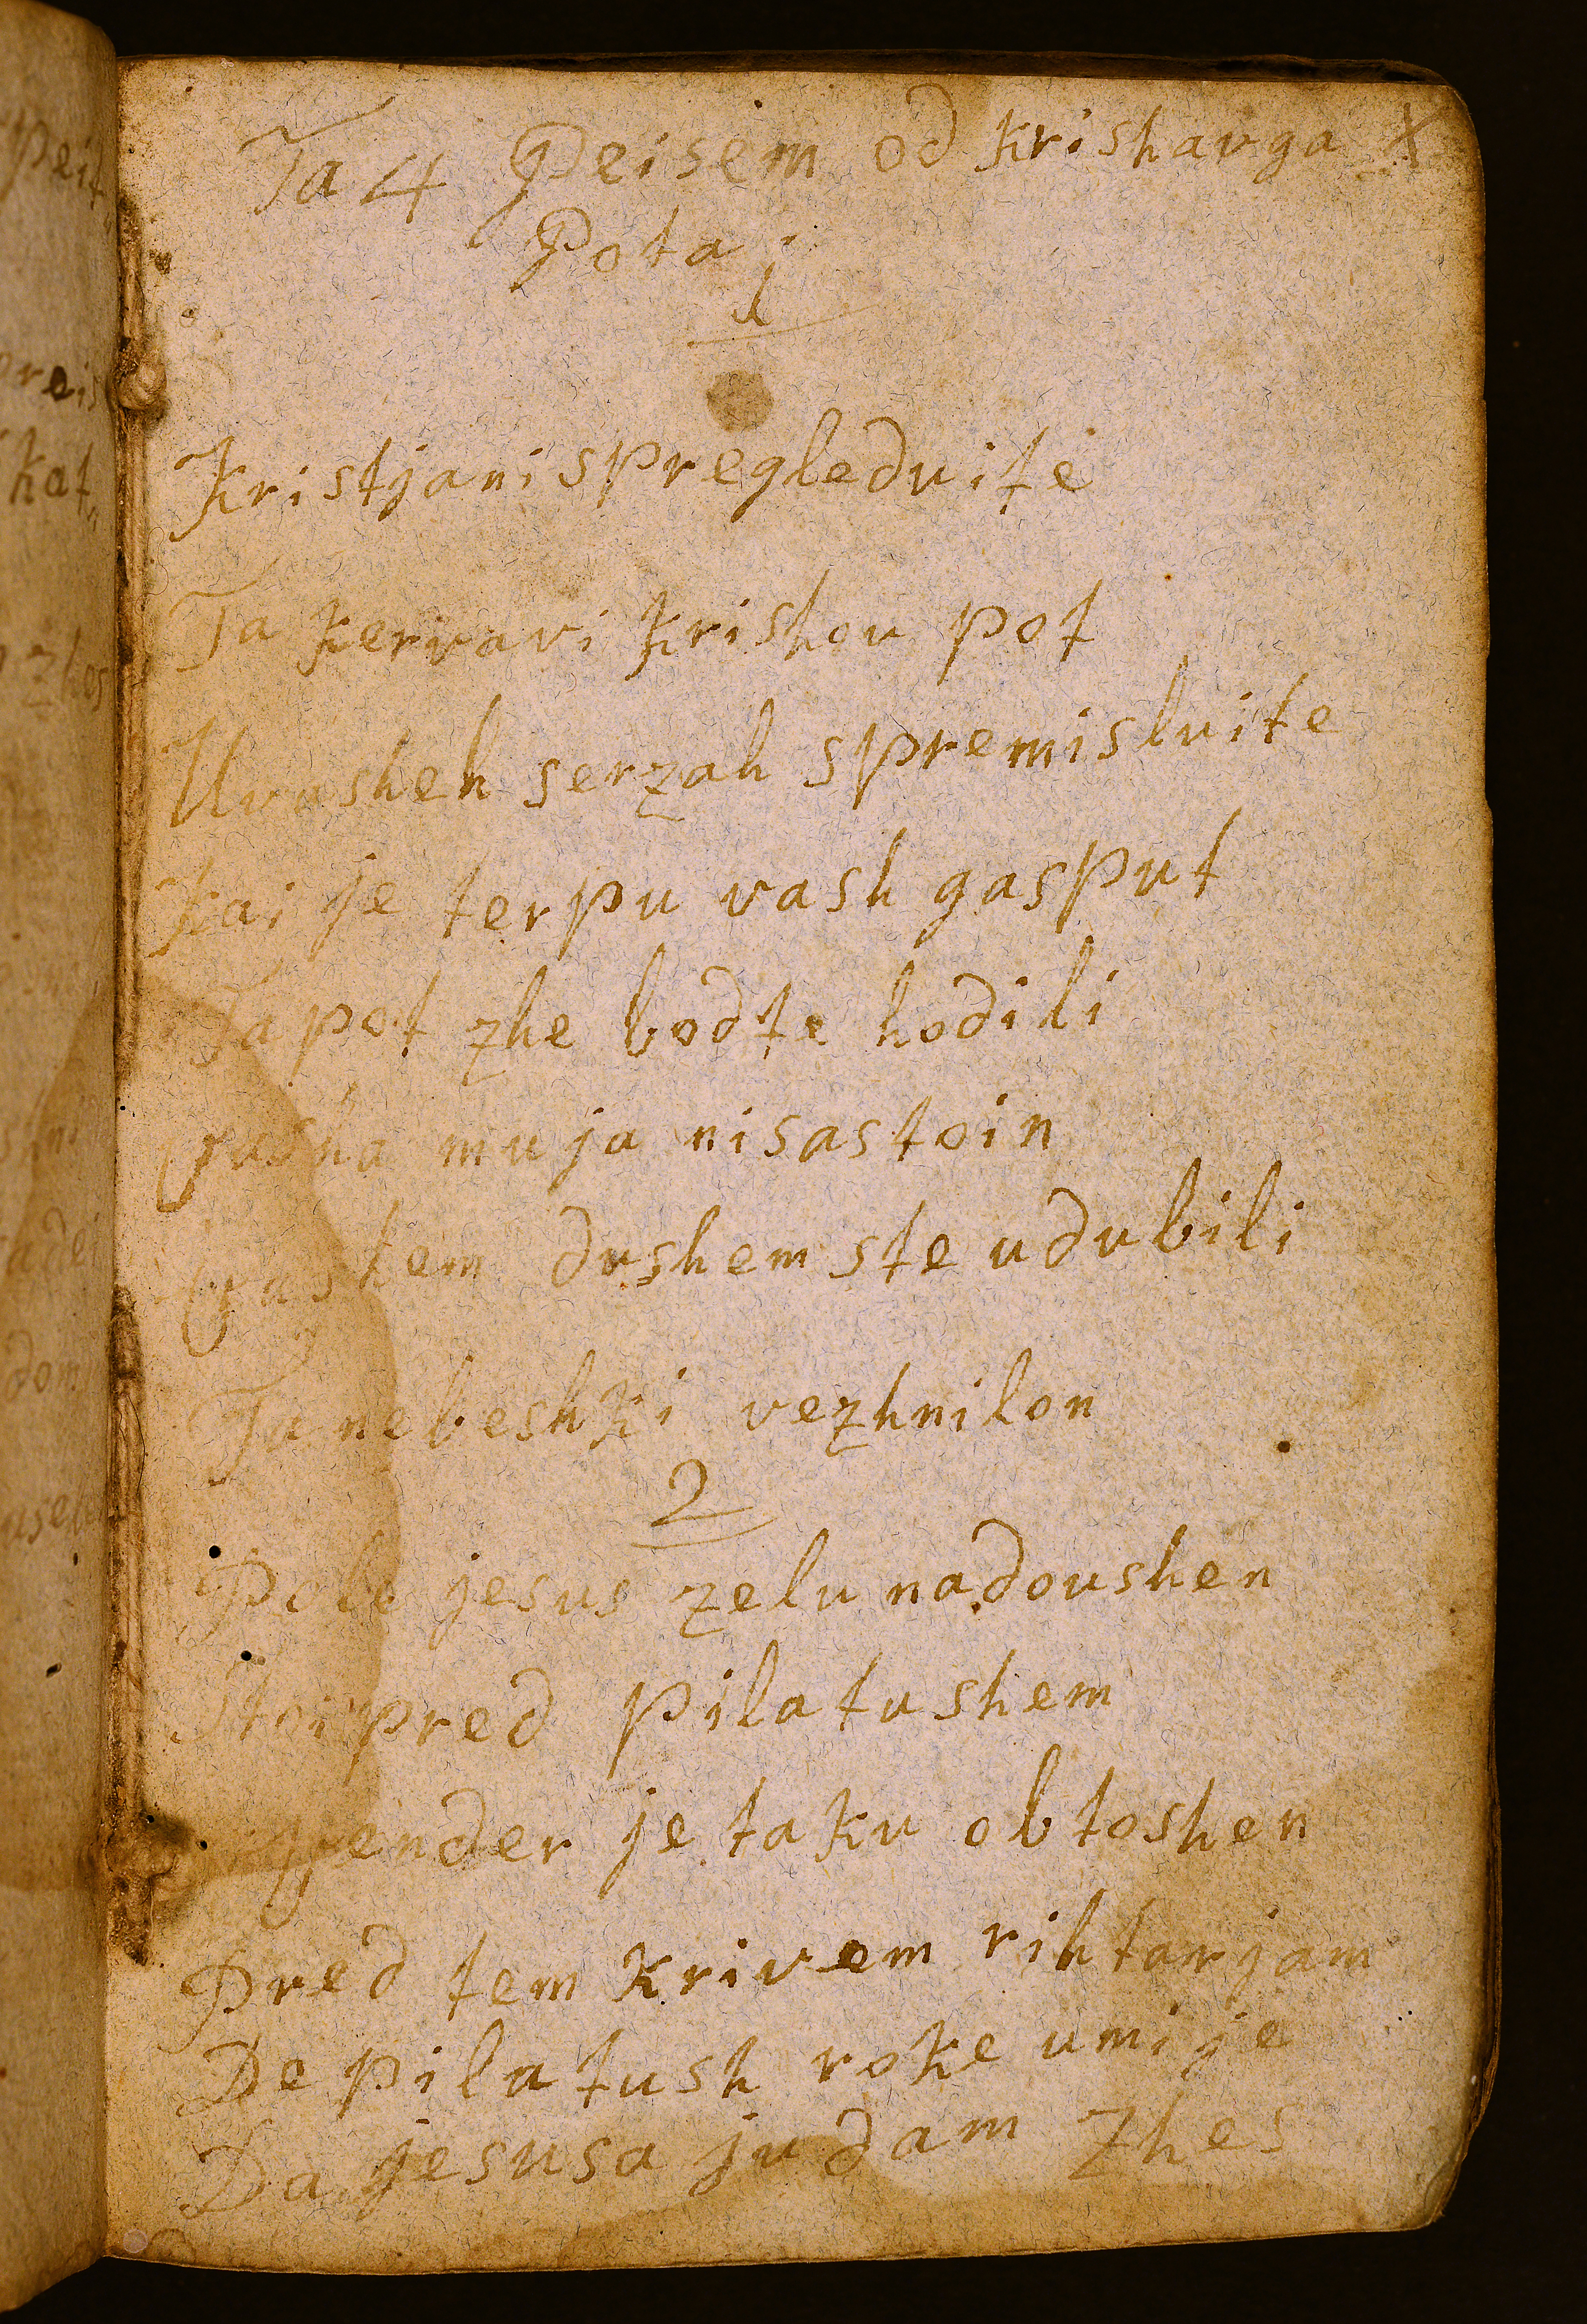 Ta 4 Peisem od krishavga X
Pota
1
Kristjani spregleduite
Ta kervavi krishou pot
Uvasheh serzah spremisluite
Kai je terpu vash gasput
Ta pot zhe bodte hodili
vasha muja nisastoin
vashem dushem ste udubili
Ta nebeshki vezhni lon
2
Pole jesus zelu nadoushen
Stoi pred pilatushem
je taku obtoshen
Pred tem krivem rihtarjam
De pilatush roke umije
Da jesusa judam zhes